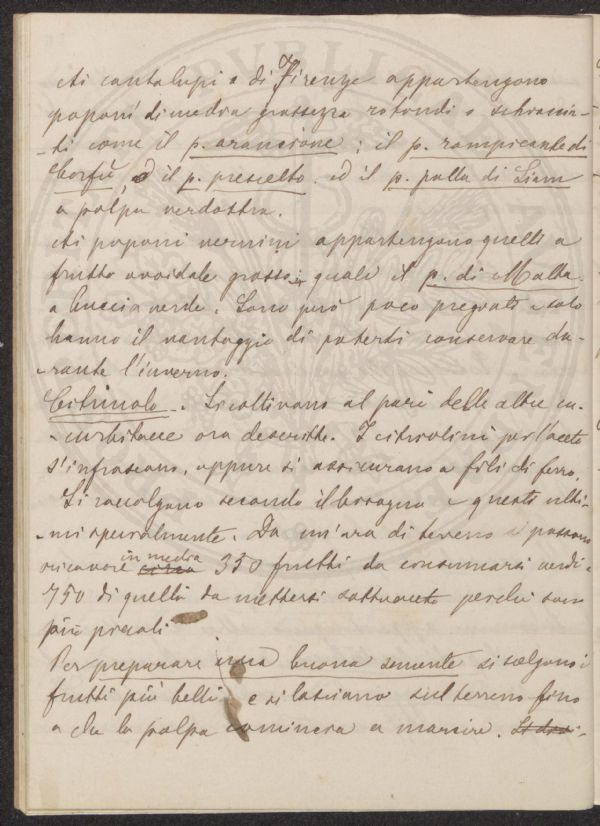 Ai cantalupi o di Firenze appartengono
poponi di media grossezza rotondi o schiaccia-
-ti come il p. arancione; il p. rampicante di
Corfù, ed il p. prescelto ed il p. palla di Siam
a polpa verdastra.
Ai poponi vernini appartengono quelli a
frutto ovoidale grosso quali il p. di Malta
a buccia verde. Sono però poco pregiati e solo
hanno il vantaggio di potersi conservare du-
-rante l'inverno.
Cetriuolo. Si coltivano al pari delle altre cu-
-curbitacee ora descritte. I citriolini per l'aceto
s'infrascano, oppure si assicurano a fili di ferro.
Si raccolgano secondo il bisogno e questi ulti-
-mi specialmente. Da un'ara di terreno si possono
ricavare in media circa 350 frutti da consumarsi verdi e
750 di quelli da mettersi sottaceto perchè sono
più piccoli
Per preparare una buona semente si scelgono i
frutti più belli e si lasciano sul terreno fino
a che la polpa comincia a marcire.